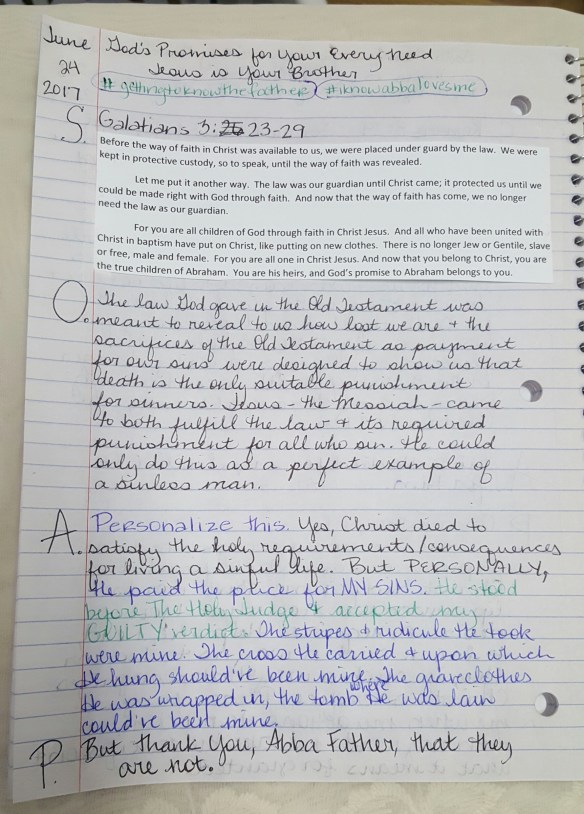 June God's Promises for Your Every Need
24 Jesus is Your Brother
2017 #gettingtoknowthefather #iknowabbalovesme
S. Galatians 3: 23-29
Before the way of faith in Christ was available to us, we were placed under guard by the law. We were
kept in protective custody, so to speak, until the way of faith was revealed.
Let me put it another way. The law was our guardian until Christ came; it protected us until we
could be made right with God through faith. And now that the way of faith has come, we no longer
need the law as our guardian.
For you are all children of God through faith in Christ Jesus. And all who have been united with
Christ in baptism have put on Christ, like putting on new clothes. There is no longer Jew or Gentile, slave
or free, male and female. For you are all one in Christ Jesus. And now that you belong to Christ, you are
the true children of Abraham. You are his heirs, and God's promise to Abraham belongs to you.
O. The law God gave in the Old Testament was
meant to reveal to us how lost we are + the
sacrifices of the Old Testament as payment
for our sins were designed to show us that
death is the only suitable punishment
for sinners. Jesus - the Messiah - came
to both fulfill the law + its required
punishment for all who sin. He could
only do this as a perfect example of
a sinless man.
A. Personalize this. Yes, Christ died to
satisfy the holy requirements/consequences
for living a sinful life. But PERSONALLY,
He paid the price for MY SINS. He stood
before The Holy Judge & accepted my
GUILTY verdict. The stripes & ridicule He took
were mine. The cross He carried & upon which
He hung should've been mine. The graveclothes
He was wrapped in, the tomb where He was lain
could've been mine.
P. But thank You, Abba Father, that they
are not.